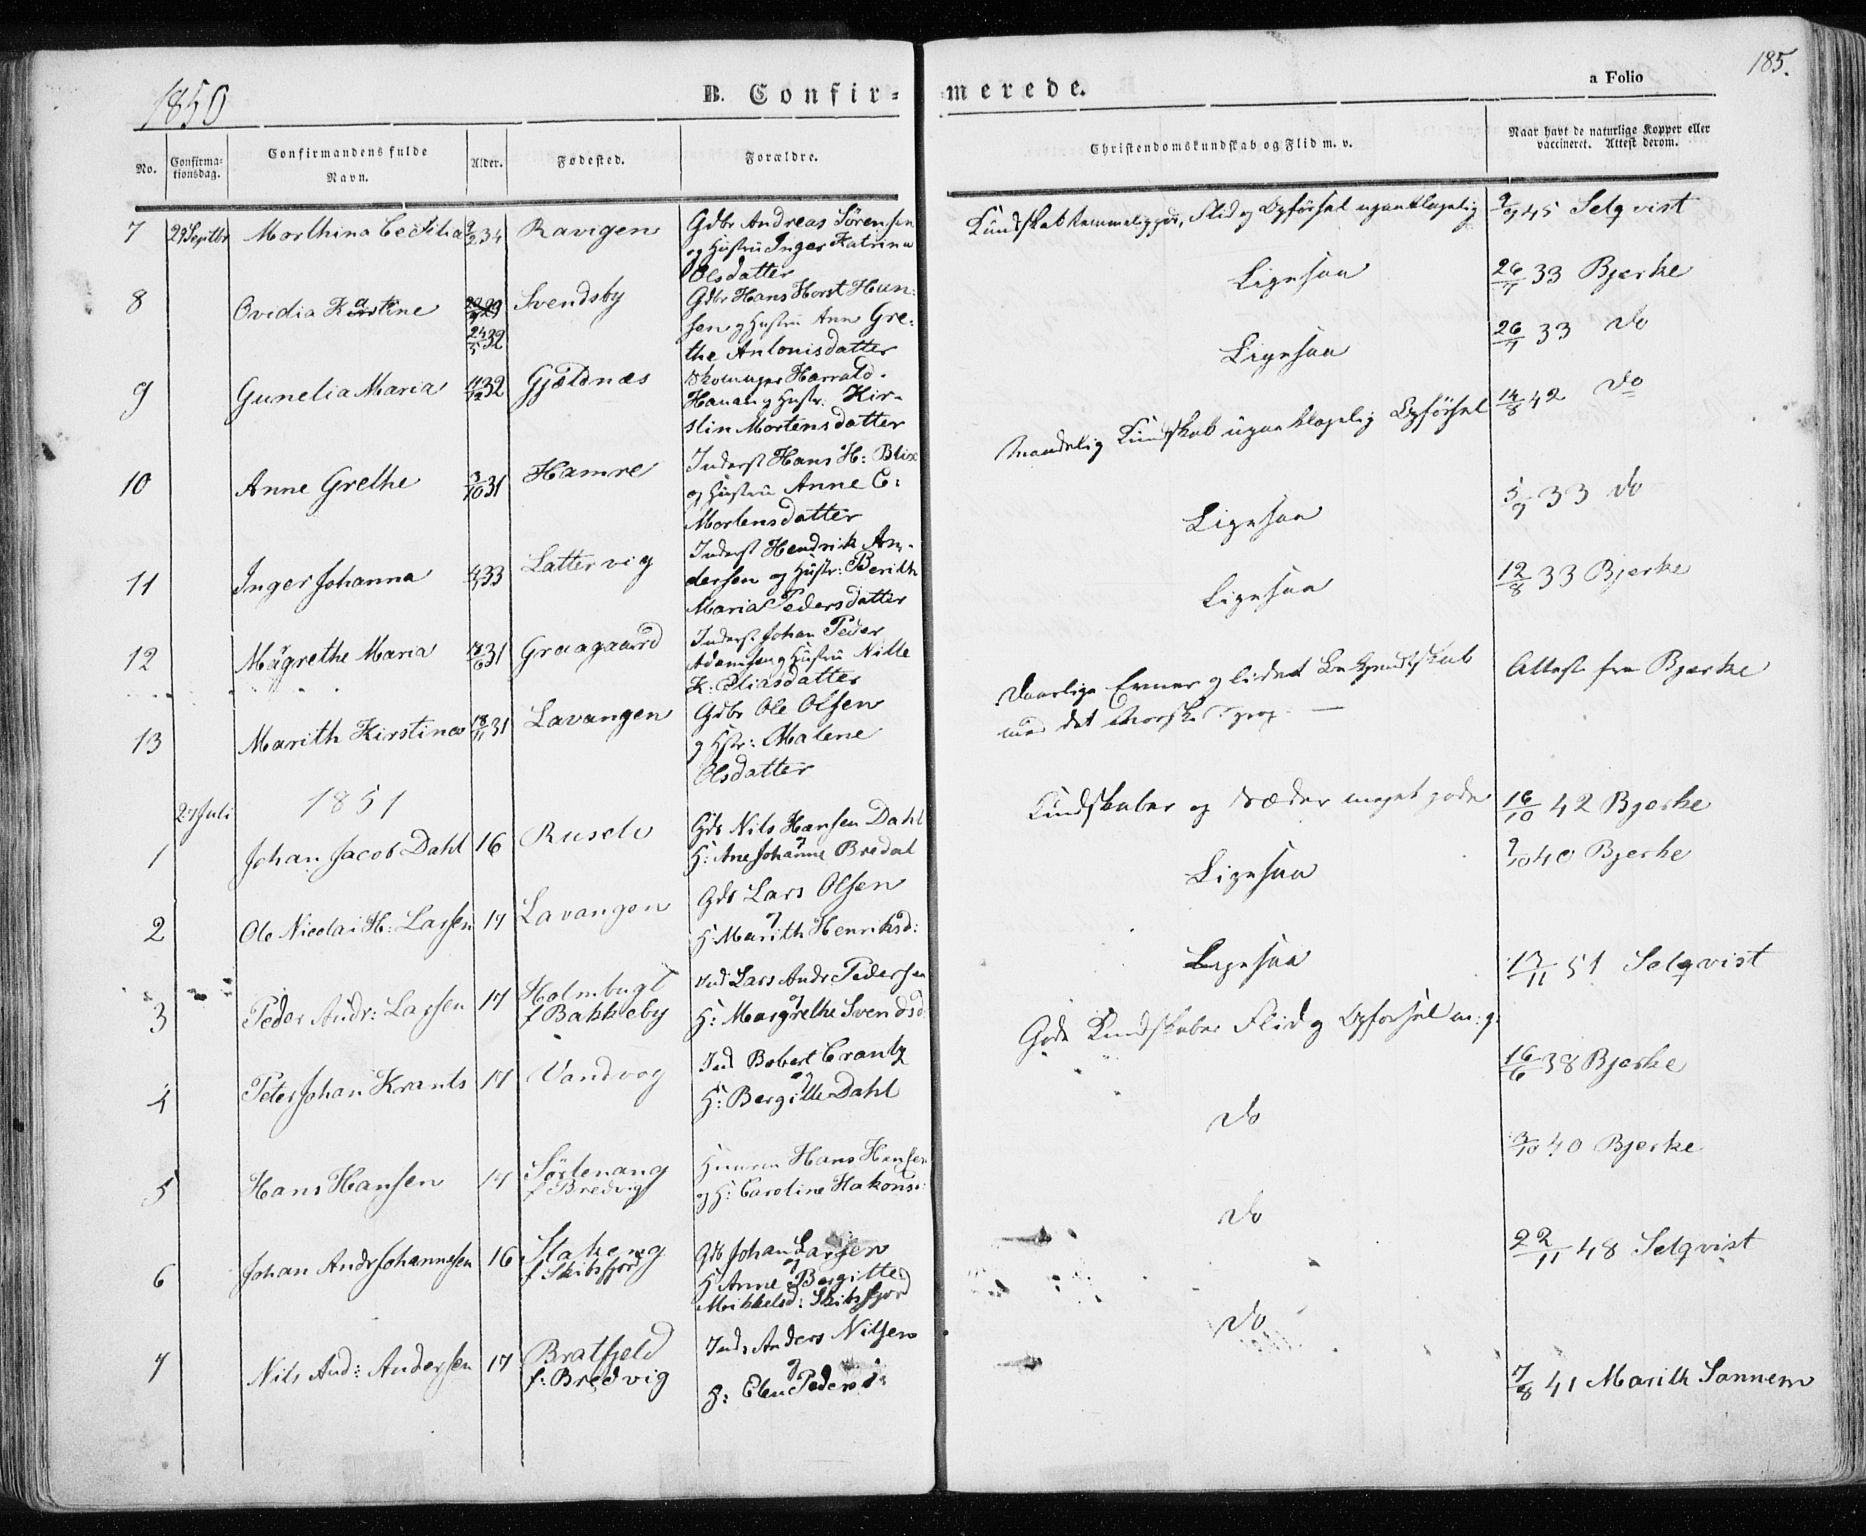 1850
B. Confir- merede.
a Folio
185.
No.
Confirma-
tionsdag.
Confirmandens fulde
Navn.
Alder.
Fødested.
Forældre.
Christendomskundskab og Flid m. v.
Naar havt de naturlige Kopper eller
vaccineret. Attest derom.
7 29 Septbr Morthina Cecilia 34 Ravigen Gdbr Andreas Sörensen
og Hustru Inger Katrina
Olsdatter
Kundskab temmelig god, Flid og Opförsel upaaklagelig 45 Selqvist
8 Ovidia Kastine 24/5 32 Svendsby Gdbr Hans Horst Han-
sen og Hustru Ann Gre-
the Antonisdatter
Ligesaa 26/7 33 Bjerke
9 Gunelia Maria 32 Gjøvdnæs Harrald
Hanan og Hustr: Kir-
stin Mortensdatter
Ligesaa 26/7 33 do
10 Anne Grethe 3/10 31 Hamre Inderst Hans H: Blix
og Hustru Anne C:
Mortensdatter
Maadelig Kundskab upaaklagelig Opförsel 14/8 42 do
11 Inger Johanna 33 Lattervig Inderst Hendrik An-
dersen og Hustr: Berith
Maria Pedersdatter
Ligesaa 5/7 33 do
12 Margrethe Maria 31 Graagaard Inderst Johan Peder
Adamsen og Hustru Nille
K: Eliasdatter
Ligesaa 12/8 33 Bjerke
13 Marith Kirstine 18/11 31 Lavangen Gdbr Ole Olsen
og Hstr: Malene
Olsdatter
Daarlige Evner og lidet Bekjendtskab
med det Norske Sprog. Attest fra Bjerke
27 Juli 1851
1 Johan Jacob Dahl 16 Rusele Gdb Nils Hansen Dahl
og H: Ane Johanne Bredal
Kundskaber og Sæder meget gode 16/10 42 Bjerke
2 Ole Nicolai H: Larsen 17 Lavangen Gdb Lars Olsen
og H: Marith Henriksd:
Ligesaa 9/10 40 Bjerke
3 Peder Andr: Larsen 17 Holmbugt
f Bakkeby Ind Lars Andr Pedersen
og H: Margrethe Svendsd
Ligesaa 17/11 51 Selqvist
4 Peter Johan Krants 17 Vandvog Ind Robert Crantz
og H: Bergitte Dahl
Gode Kundskaber Flid og Opforsel m: g: 16/6 38 Bjerke
5 Hans Hansen 17 Sörlenang
f Bredvig Hans Hansen
og H: Caroline Hakonsd:
Do 3/10 40 Bjerke
6 Johan Andr Johannesen 16 Stakeng
f Skibsfjord Gdb Johan Larsen
og H Anne Bergitte
Mikkelsd: Skibsfjord
Do 22/11 48 Selqvist
7 Nils And: Andersen 17 Bratfjeld
f: Bredvig Ind: Anders Nilsen
og H: Elen Pedersd:
Do 7/8 41 Marith Sannem